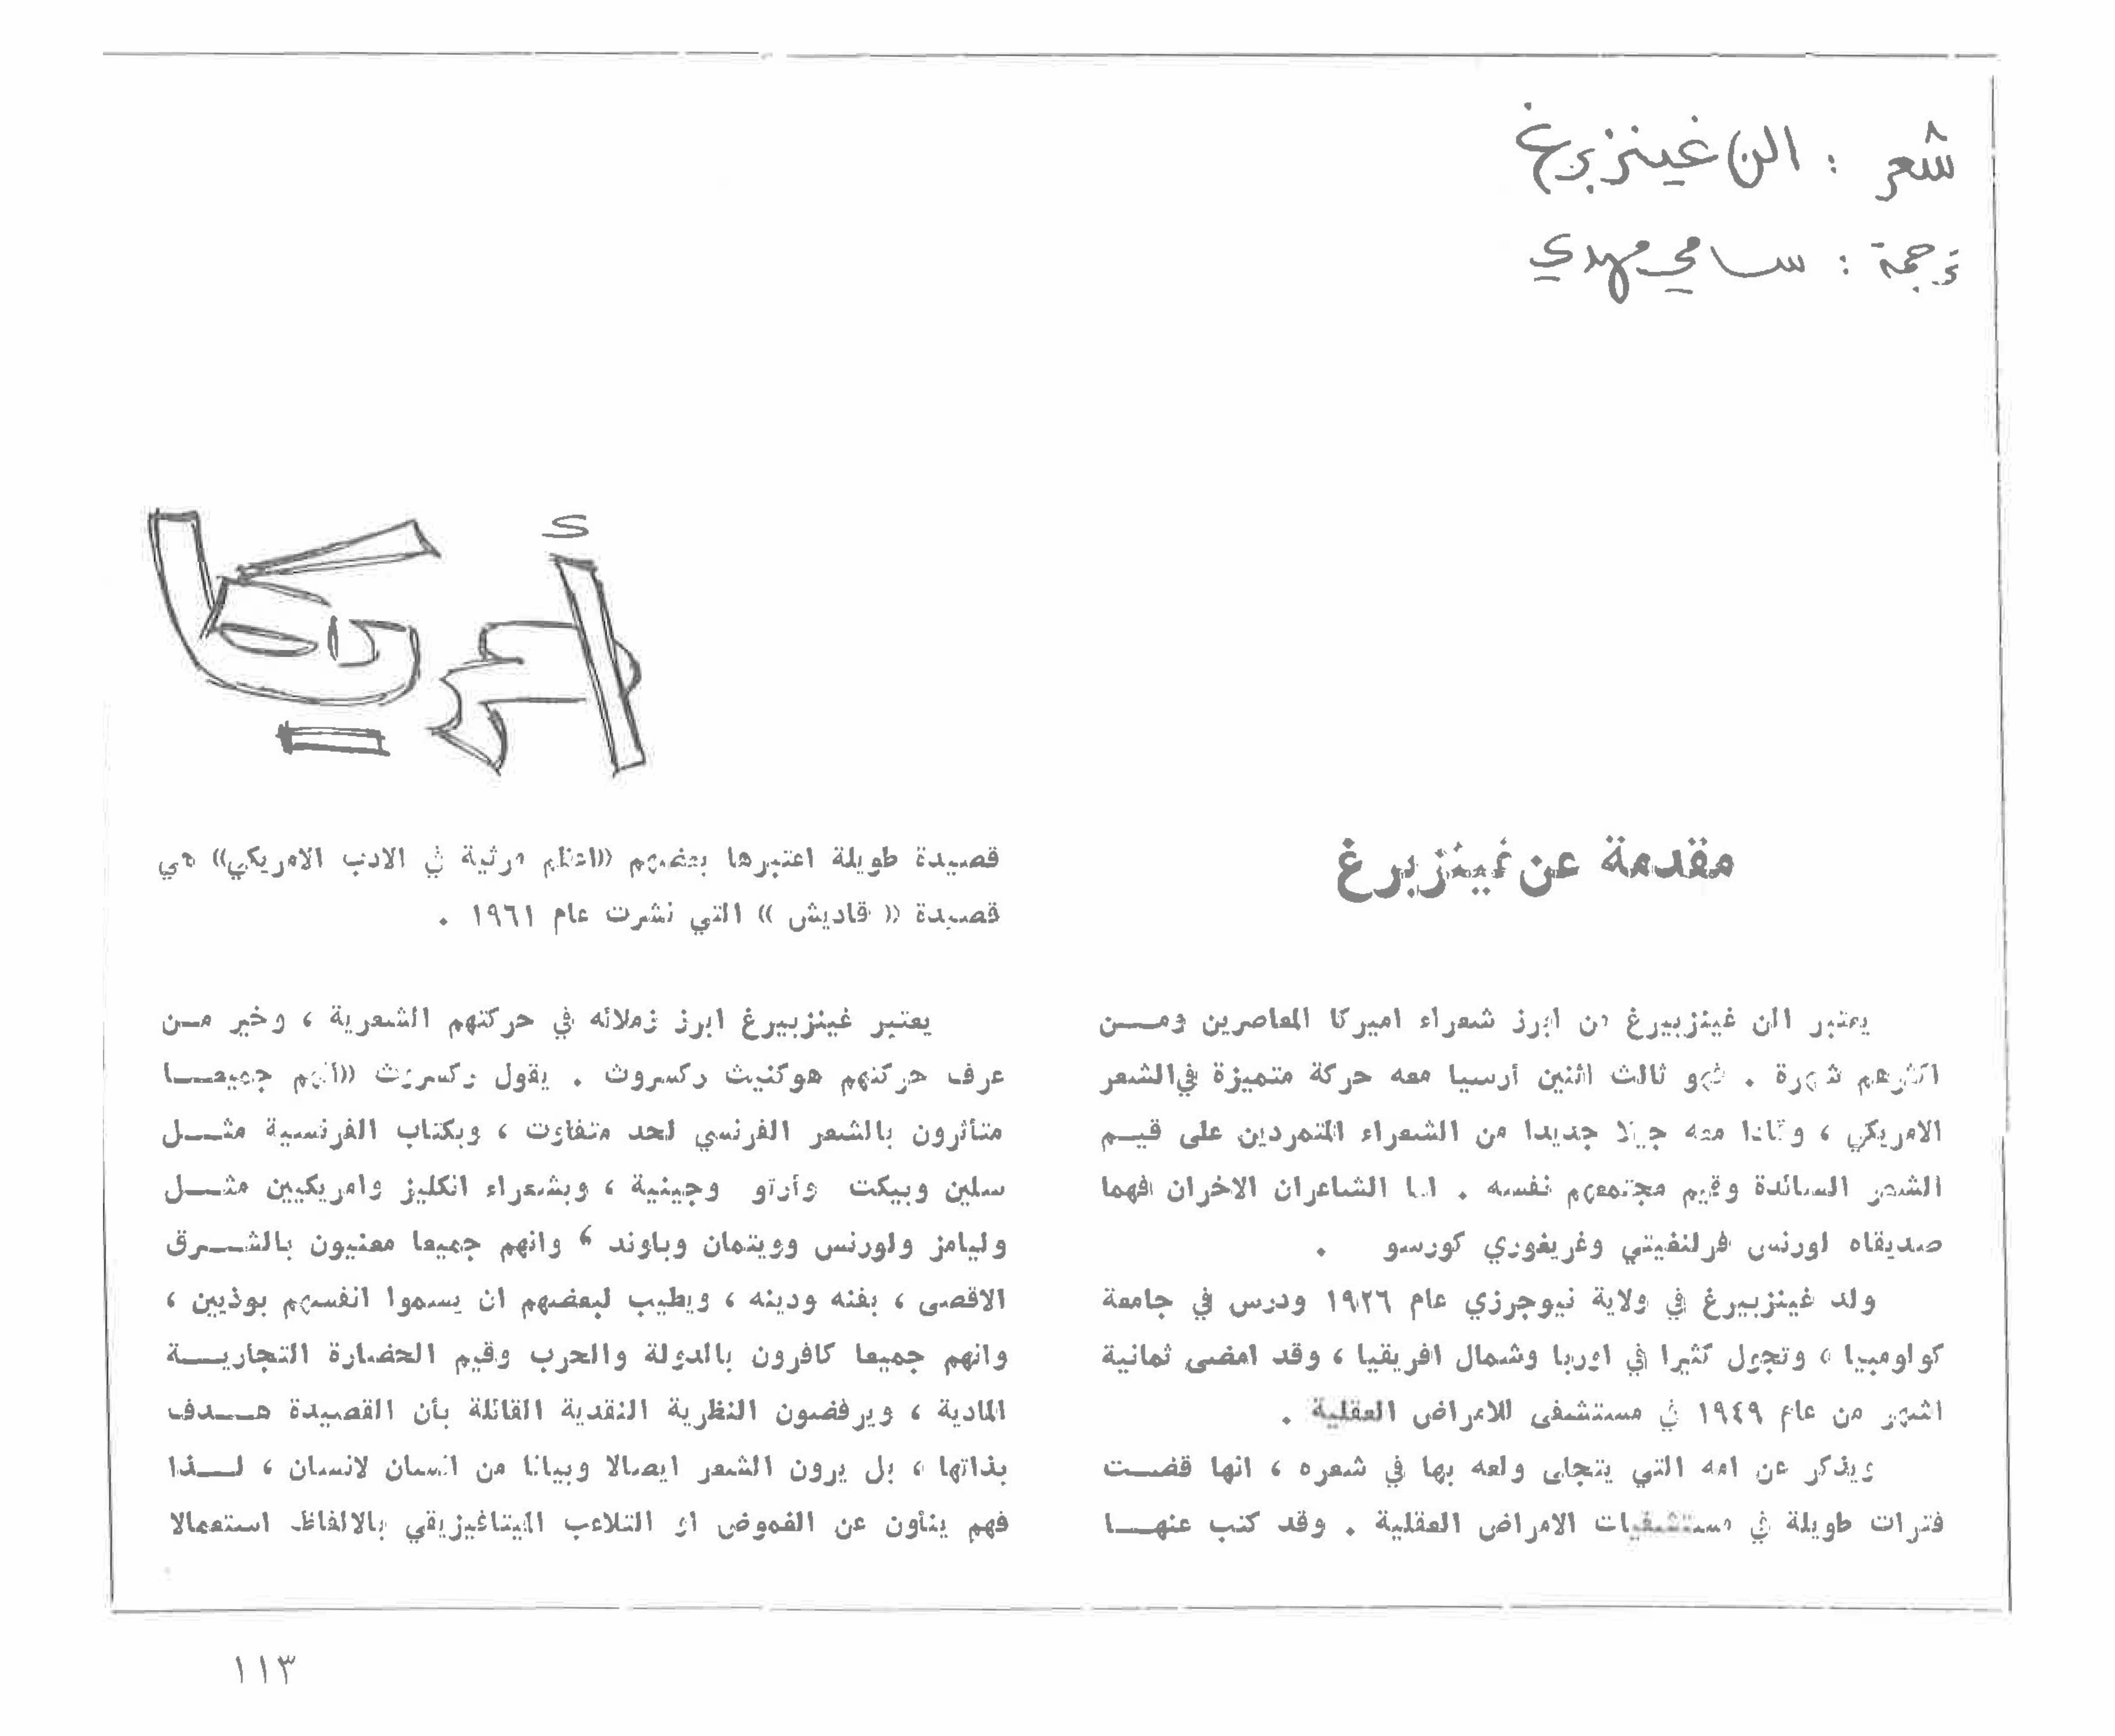 شعر : الن غينزبرغ
ترجمة : سامي مهدي
أمريكا
مقدمة عن غينزبرغ
يعتبر الن غينزبيرغ من ابرز شعراء اميركا المعاصرين ومــن
اكثرهم شهرة . فهو ثالث اثنين أرسيا معه حركة متميزة في الشعر
الامريكي ، وقادا معه جيلا جديدا من الشعراء المتمردين على قيــم
الشعر السائدة وقيم مجتمعهم نفسه . اما الشاعران الاخران فهما
صديقاه لورنس فرلنفيتي وغريغوري كورسو .
ولد غينزبيرغ في ولاية نيوجرزي عام ١٩٢٦ ودرس في جامعة
كولومبيا ، وتجول كثيرا في اوربا وشمال افريقيا ، وقد امضى ثمانية
اشهر من عام ١٩٤٩ في مستشفى للامراض العقلية .
ويذكر عن امه التي يتجلى ولعه بها في شعره ، انها قضــت
فترات طويلة في مستشفيات الامراض العقلية . وقد كتب عنهــا
قصيدة طويلة اعتبرها بعضهم ((اعظم مرثية في الادب الامريكي)) هي
قصيدة (( قاديش )) التي نشرت عام ١٩٦١ .
يعتبر غينزبيرغ ابرز زملائه في حركتهم الشعرية ، وخير مــن
عرف حركتهم هوكنيث ركسروث . يقول ركسروث ((انهم جميعــا
متأثرون بالشعر الفرنسي لحد متفاوت ، وبكتاب الفرنسية مثــل
سلين وبيكت وأرتو وجينية ، وبشعراء انكليز وامريكيين مثــل
وليامز ولورنس وويتمان وباوند ، وانهم جميعا معنيون بالشــرق
الاقصى ، بفنه ودينه ، ويطيب لبعضهم ان يسموا انفسهم بوذيين ،
وانهم جميعا كافرون بالدولة والحرب وقيم الحضارة التجاريــة
المادية ، ويرفضون النظرية النقدية القائلة بأن القصيدة هــدف
بذاتها ، بل يرون الشعر ايصالا وبيانا من انسان لانسان ، لــذا
فهم ينأون عن الغموض او التلاعب الميتافيزيقي بالالفاظ استعمالا
١١٣